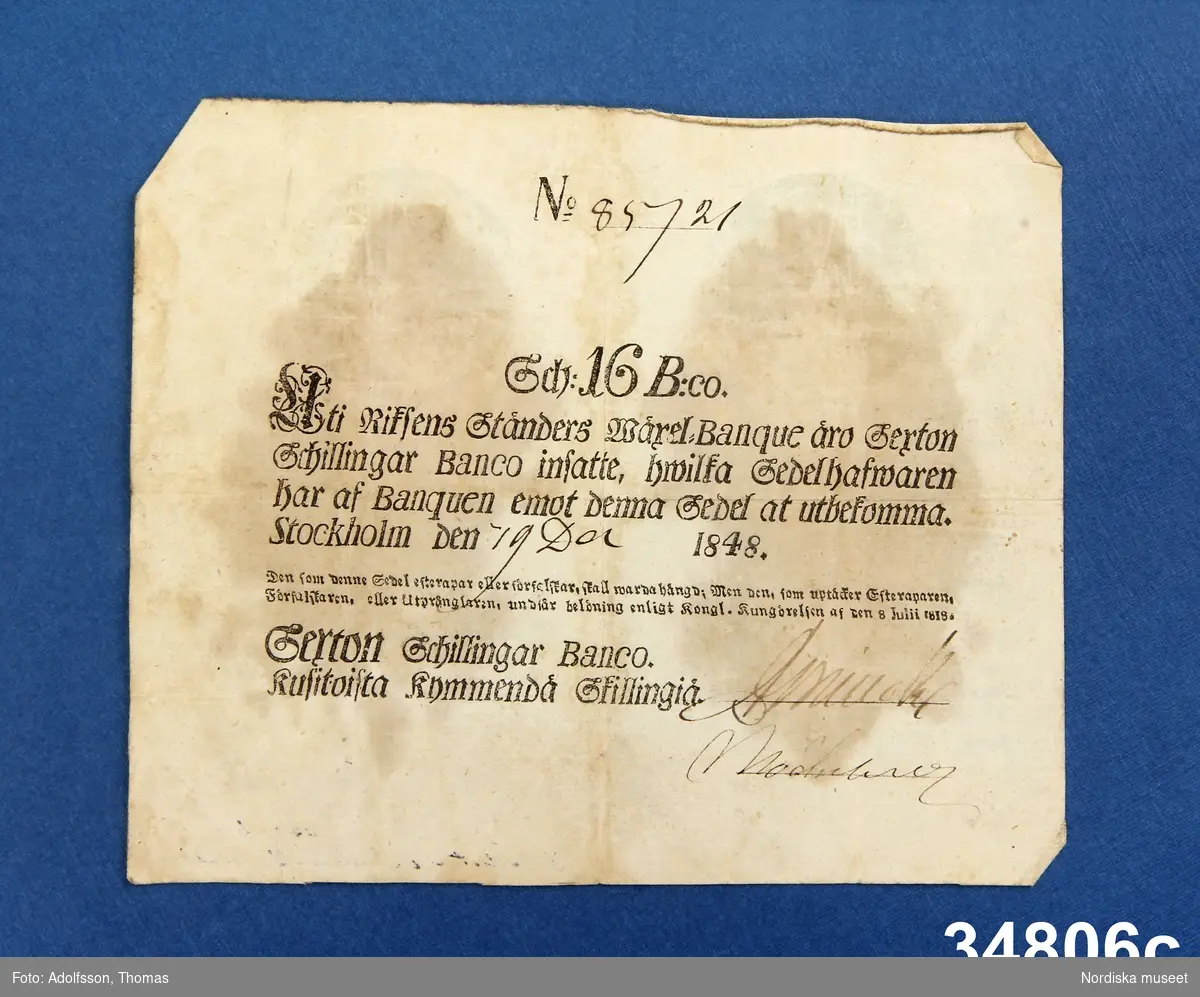 No 85721
Sch: 16 B:co.
Uti Riksens Ständers Wäxel-Banque äro Sexton
Schillingar Banco insatte, hwilka Sedelhafwaren
har af Banquen emot denna Sedel at utbekomma.
Stockholm den 19 Dec 1848.
Den som denne Sedel efterapar eller förfalskar, skall warda hängd; Men den, som uptäcker Efteraparen,
Förfalskaren, eller Utprånglaren, undfår belöning enligt Kongl. Kungörelsen af den 8 Julii 1818.
Sexton Schillingar Banco.
Kusitoista Kymmendä Skillingiä.
34806c
Foto: Adolfsson, Thomas
Nordiska museet